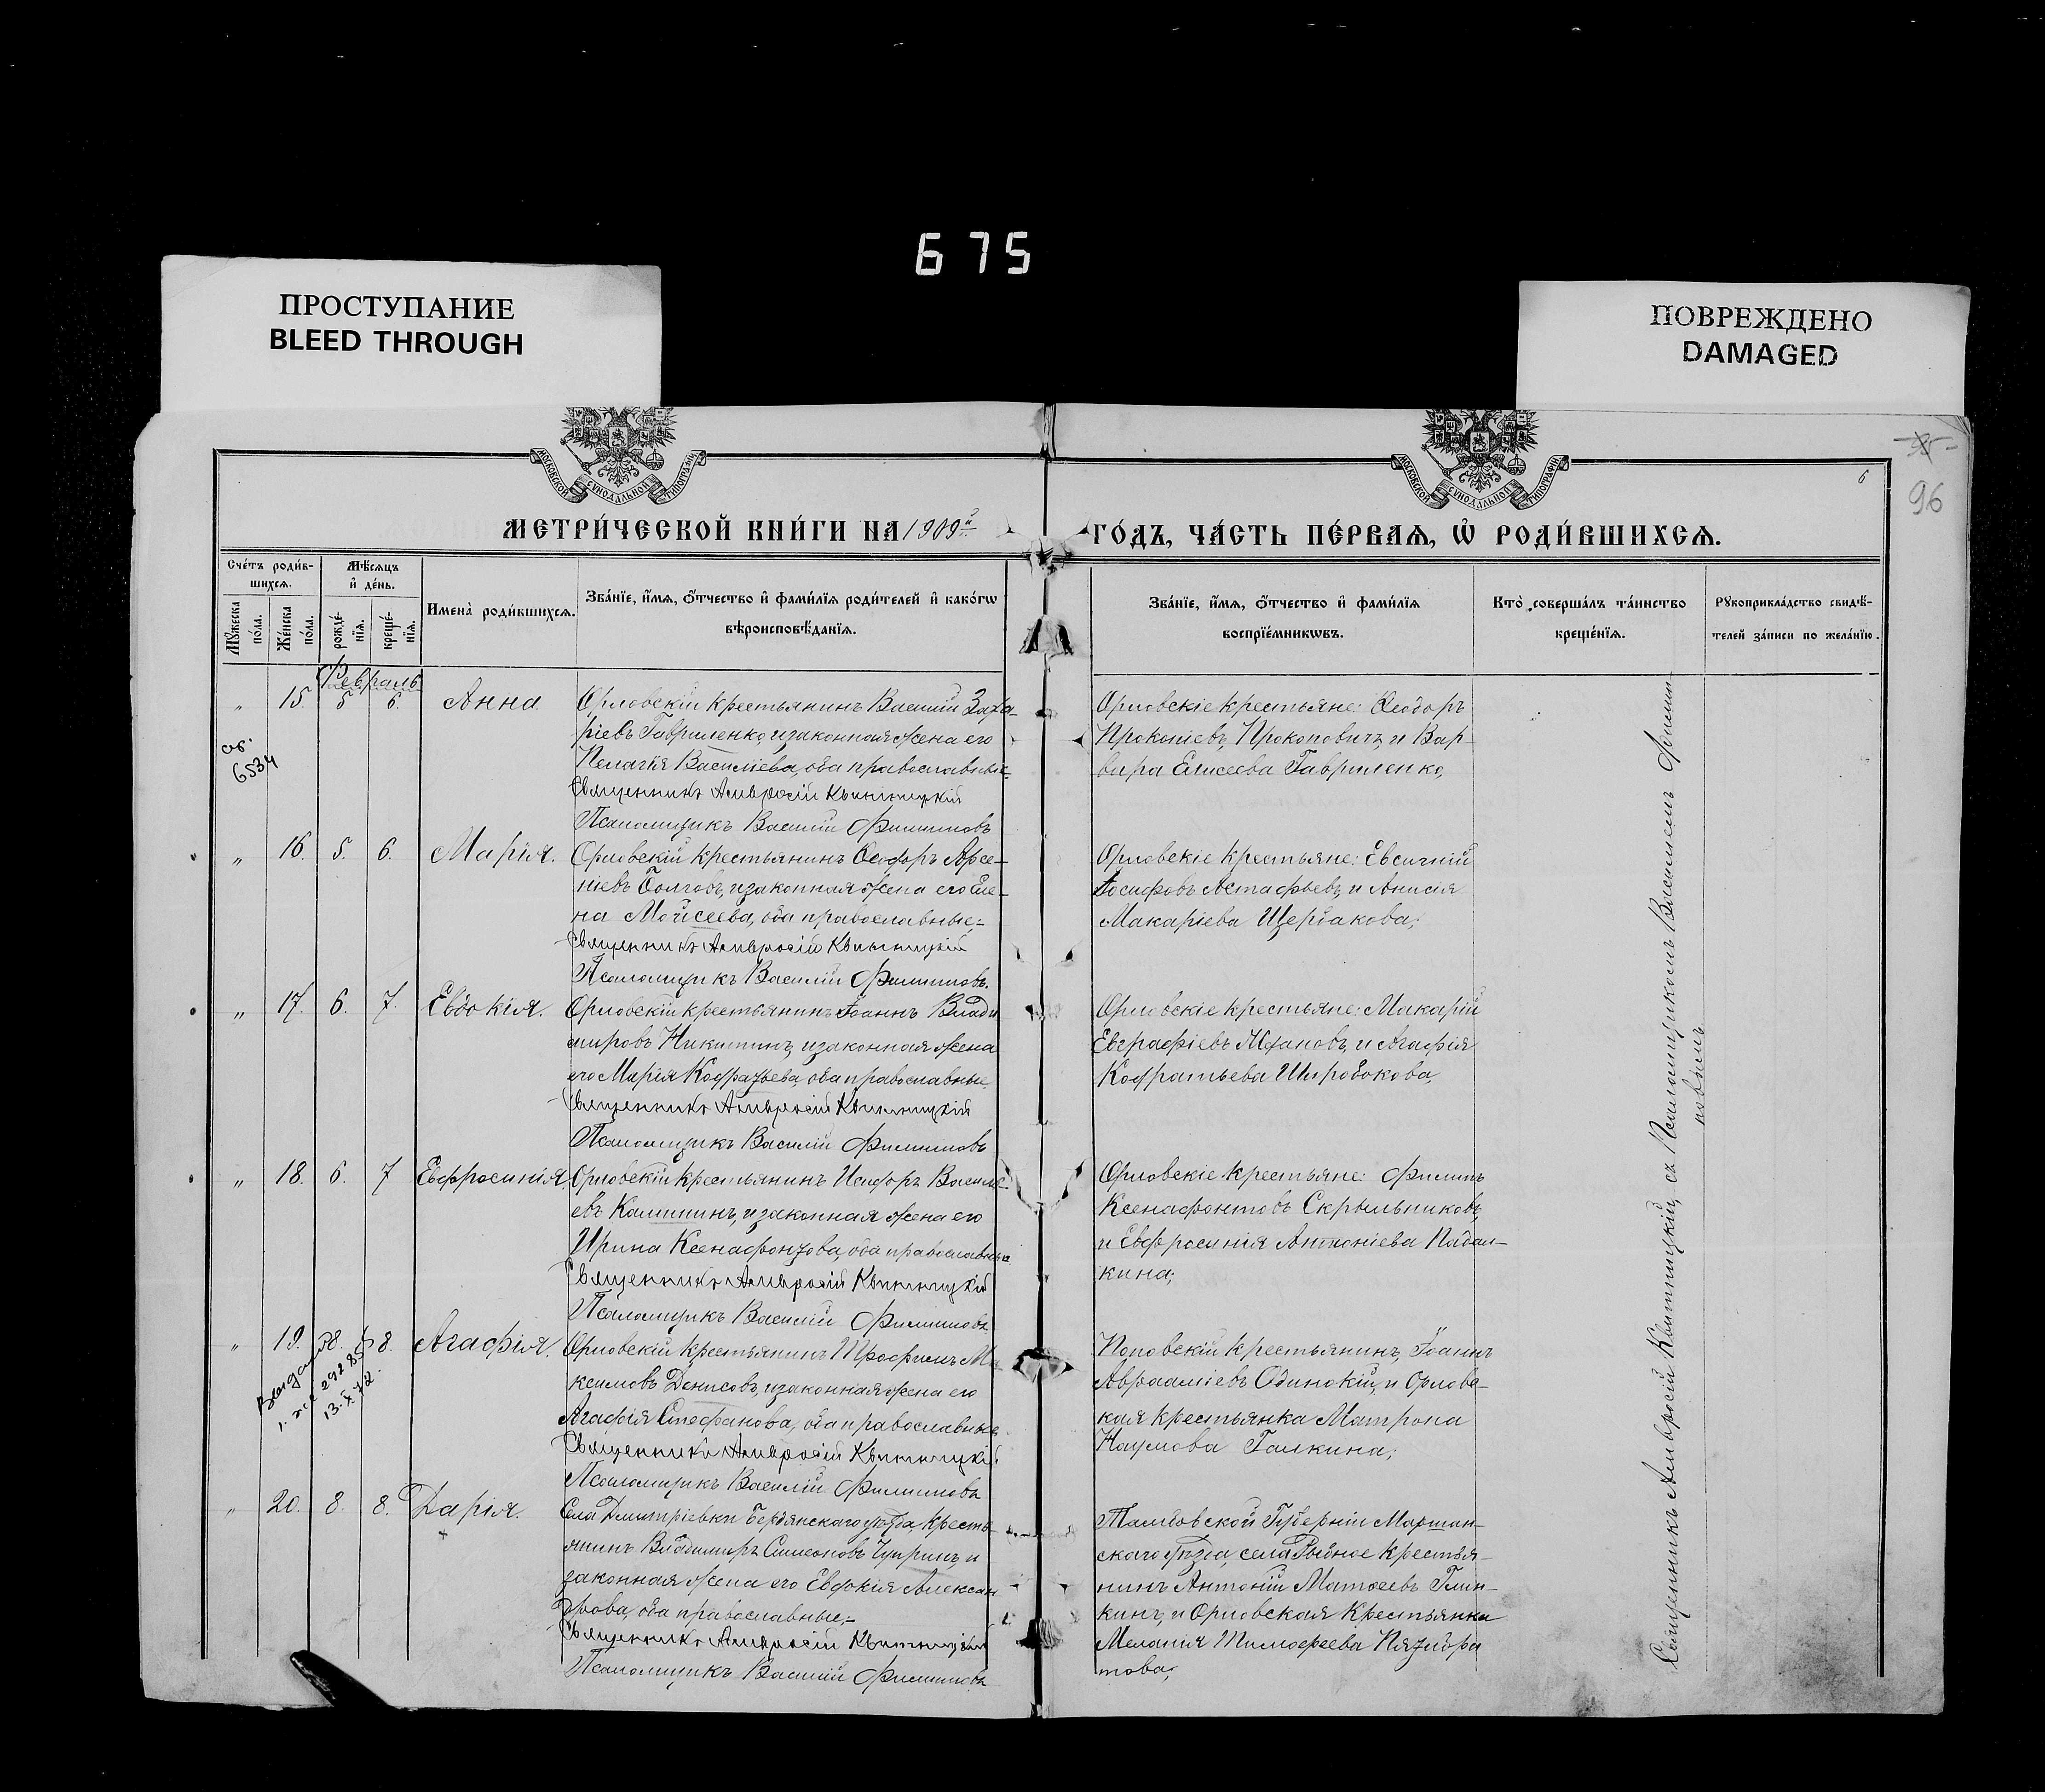 675
ПРОСТУПАНИЕ
BLEED THROUGH
ПОВРЕЖДЕНО
DAMAGED
МОСКОВСКОЙ СѴНОДАЛЬНОЙ ТИПОГРАФІИ
МОСКОВСКОЙ СѴНОДАЛЬНОЙ ТИПОГРАФІИ
6
96
МЕТРИ́ЧЕСКОЙ КНИ́ГИ НА 1909й
ГО́ДЪ, ЧА́СТЬ ПЕ́РВАѦ, Ѡ҆ РОДИ́ВШИХСѦ.
Сче́тъ роди́в-
шихсѧ.
Мѣ́сѧцъ
и҆ де́нь.
Мꙋ́жеска
по́ла.
Же́нска
по́ла.
рожде́-
нїѧ.
креще́-
нїѧ.
Имена̀ роди́вшихсѧ.
Зва́нїе, и҆́мѧ, ѻ҆́тчество и҆ фами́лїѧ роди́телей и҆ како́гѡ
вѣроисповѣ́данїѧ.
Зва́нїе, и҆́мѧ, ѻ҆́тчество и҆ фами́лїѧ
воспрїе́мникѡвъ.
Кто̀ соверша́лъ та́инство
креще́нїѧ.
Рꙋкоприкла́дство свидѣ́-
телей за́писи по жела́нїю.
Февраль
„ 15. 5 6. Анна
Орловскій крестьянинъ Василій Заха-
ріевъ Гавриленко, и законная жена его
Пелагія Василіева, оба православные.
Священникъ Амвросій Квитницкій
Псаломщикъ Василій Филиповъ
Орловскіе крестьяне: Ѳеодоръ
Прокопіевъ Прокоповичъ, и Вар-
вара Елисеева Гавриленко,
6534
„ 16. 5. 6. Марія.
Орловскій крестьянинъ Ѳеодоръ Арсе-
ніевъ Болговъ, и законная жена его Еле-
на Мойсеева, оба православные;-
Священникъ Амвросій Квитницкій
Псаломщикъ Василій Филиповъ.
Орловскіе крестьяне: Евсигній
Іосифовъ Астафьевъ, и Анисія
Макаріева Щербакова;
„ 17. 6. 7. Евдокія.
Орловскій крестьянинъ Іоаннъ Влади
мировъ Никитинъ, и законная жена
его Марія Кодратьева, оба православные.
Священникъ Амвросій Квитницкій
Псаломщикъ Василій Филиповъ
Орловскіе крестьяне: Макарій
Евграфіевъ и Агафія
Кодратьева Широбокова,
„ 18. 6. 7 Евфросинія.
Орловскій крестьянинъ Исидоръ Василі-
евъ Калининъ, и законная жена его
Ирина Ксенафонтова, оба православные
Священникъ Амвросій Квитницкій
Псаломщикъ Василій Филиповъ
Орловскіе крестьяне: Филипъ
Ксенафонтовъ Скрыльниковъ,
и Евфросинія Антоніева Падал-
кина;
„ 19. 8. 8. Агафія.
29285
13.X.72.
Орловскій крестьянинъ Трофимъ Ма
ксимовъ Денисовъ, и законная жена его
Агафія Стефанова, оба православные.
Священникъ Амвросій Квитницкій
Псаломщикъ Василій Филиповъ
Поповскій крестьянинъ, Іоаннъ
Авраамiевъ Одинокій, и Орловс-
кая крестьянка Матрона
Наумова Галкина;
„ 20. 8. 8. Дарія.
Села Дмитріевки Бердянскаго уѣзда, кресть-
янинъ Владимиръ Симеоновъ Чупринъ, и
законная жена его Евдокія Алексан
дрова, оба православные;-
Священникъ Амвросій Квитницкій
Псаломщикъ Василій Филиповъ
Тамбовской Губерніи Моршан-
скаго уѣзда, села крестья-
нинъ Антоній Матѳеевъ Глин-
кинъ, и Орловская крестьянка
Меланія Тимофеева
това;
Священникъ Амвросій Квитницкій, съ Псаломщикомъ Василіемъ Филип-
повымъ